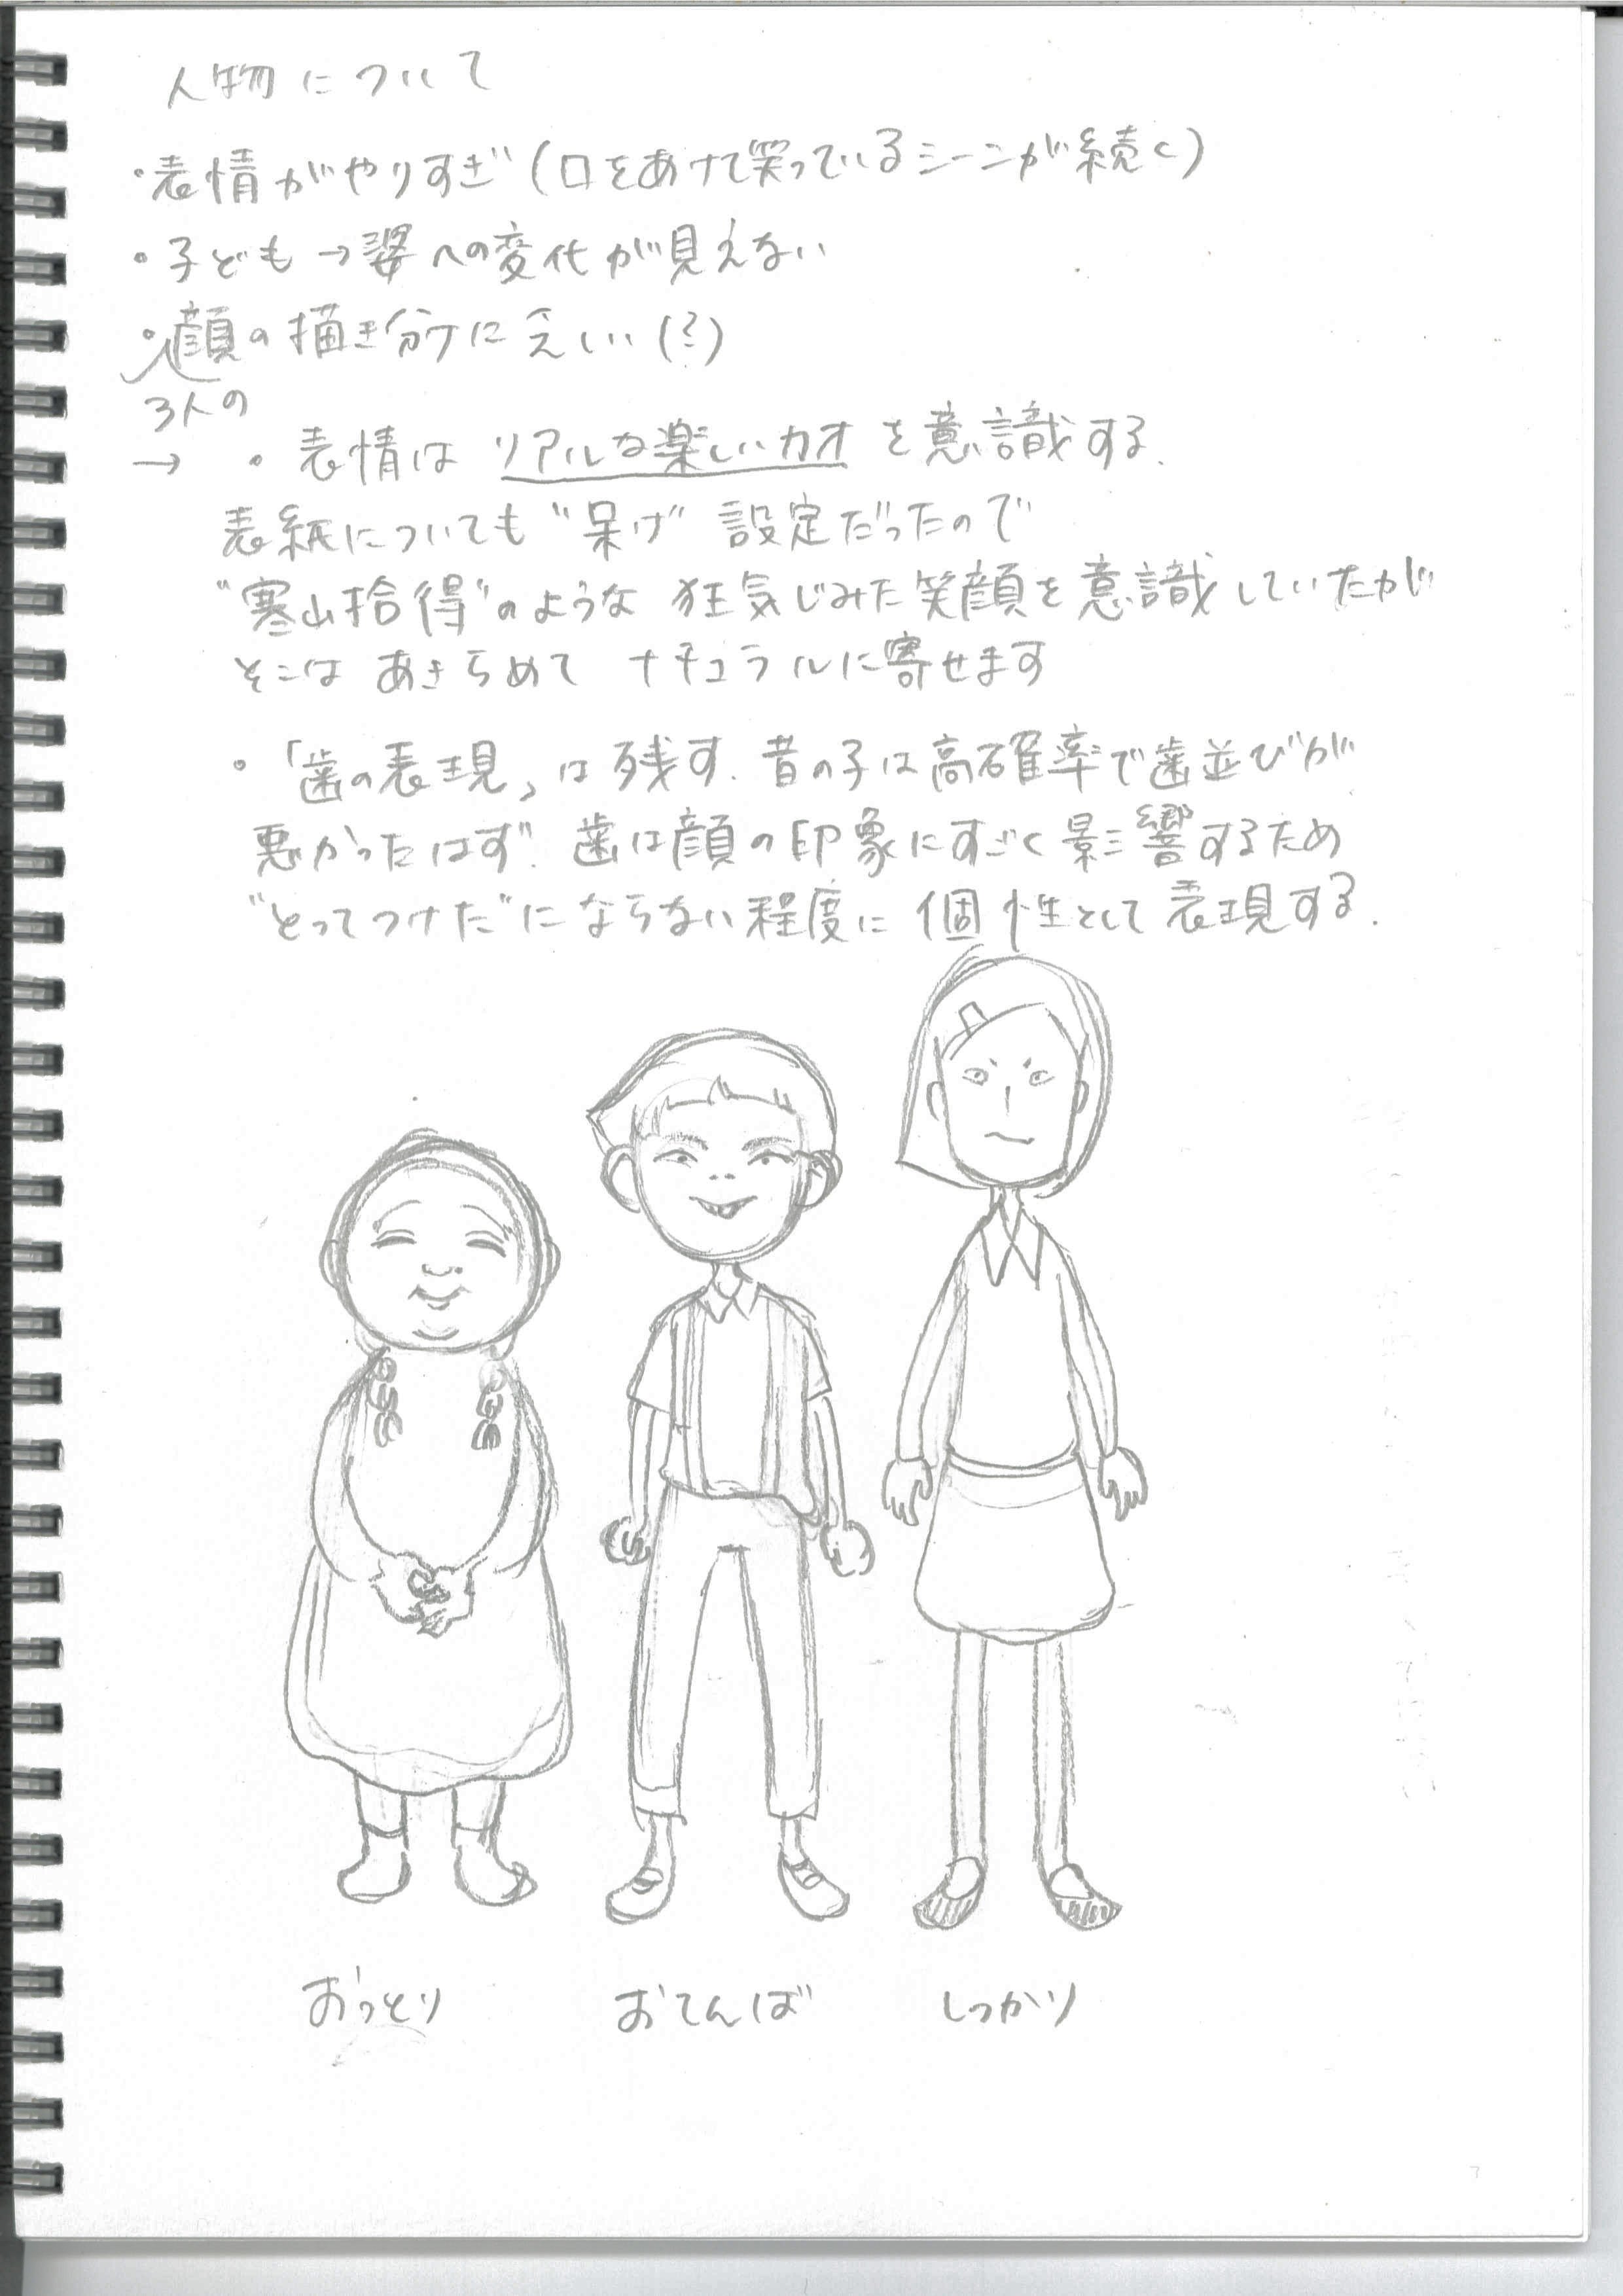 人物について
・表情がやりすぎ(口をあけて笑っているシーンが続く)
・子ども→婆への変化が見えない
・顔の描き分けに乏しい(?)
3人の
→ ・表情は リアルな楽しいカオ を意識する.
表紙についても"呆け"設定だったので
"寒山拾得"のような 狂気じみた笑顔を意識していたが
そこは あきらめて ナチュラルに寄せます
・「歯の表現」は残す. 昔の子は高確率で歯並びが
悪かったはず. 歯は顔の印象にすごく影響するため
"とってつけた"にならない程度に 個性として表現する.
おっとり おてんば しっかり